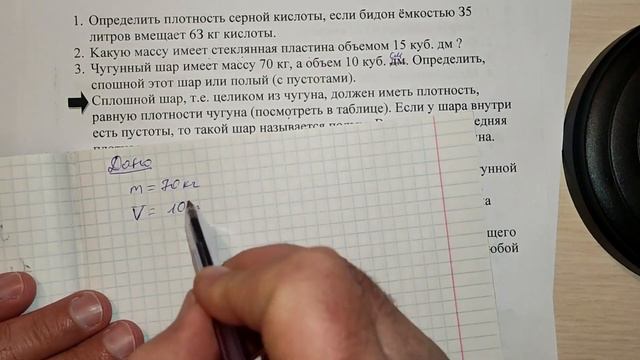 1. Определить плотность серной кислоты, если бидон ёмкостью 35
литров вмещает 63 кг кислоты.
2. Какую массу имеет стеклянная пластина объемом 15 куб. дм ?
3. Чугунный шар имеет массу 70 кг, а объем 10 куб. дм. Определить,
спошной этот шар или полый (с пустотами).
Сплошной шар, т.е. целиком из чугуна, должен иметь плотность,
равную плотности чугуна (посмотреть в таблице). Если у шара внутри
есть пустоты, то такой шар называется
Дано
m = 70 кг
V = 10